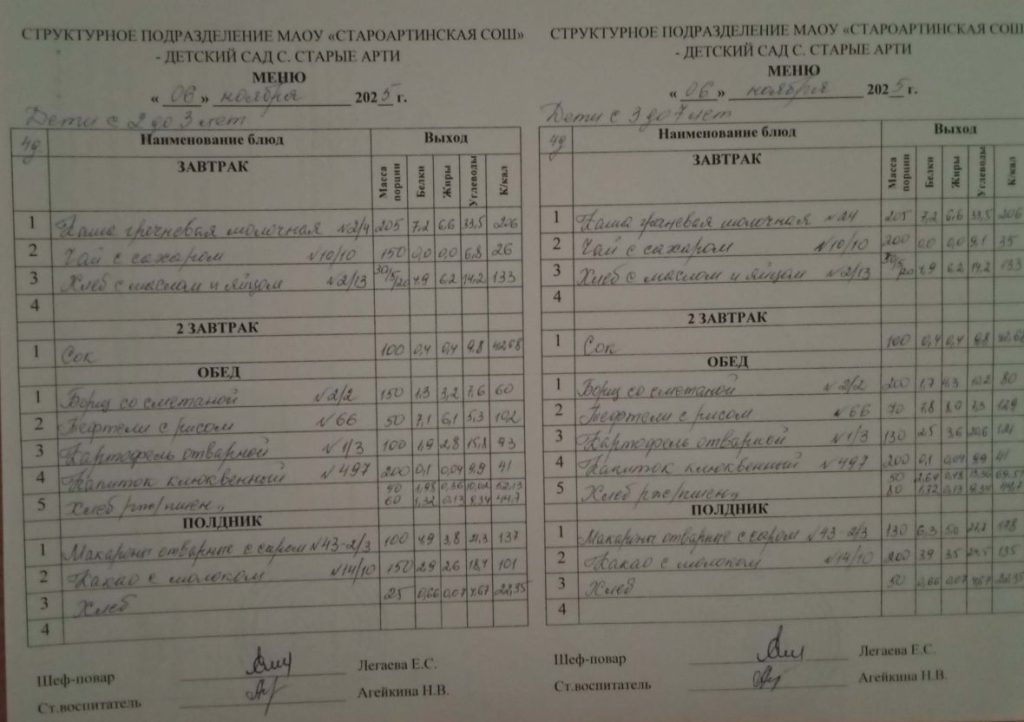 СТРУКТУРНОЕ ПОДРАЗДЕЛЕНИЕ МАОУ «СТАРОАРТИНСКАЯ СОШ»
- ДЕТСКИЙ САД С. СТАРЫЕ АРТИ
МЕНЮ
« 06 » ноября 2025 г.
Дети с 2 до 3 лет
4д Наименование блюд Выход
ЗАВТРАК Масса порции Белки Жиры Углеводы К/кал
1 Каша гречневая молочная №2/4 205 7,2 6,6 33,5 206
2 Чай с сахаром №10/10 150 0,0 0,0 6,8 26
3 Хлеб с маслом и яйцом №2/13 30/5/20 4,9 6,2 14,2 133
4
2 ЗАВТРАК
1 Сок 100 0,4 0,4 9,8 42,68
ОБЕД
1 Борщ со сметаной №2/2 150 1,3 3,2 7,6 60
2 Тефтели с рисом №66 50 7,1 6,1 5,3 102
3 Картофель отварной №1/3 100 1,9 2,8 15,8 93
4 Напиток клюквенный №497 200 0,1 0,04 9,9 41
5 Хлеб рж/пшен 40 1,98 0,36 10,02 52,13
60 1,32 0,13 9,34 44,7
ПОЛДНИК
1 Макароны отварные с сыром №43-2/3 100 4,9 3,8 21,3 137
2 Какао с молоком №14/10 150 2,9 2,6 18,4 101
3 Хлеб 25 0,66 0,07 4,67 22,35
4
Шеф-повар Легаева Е.С.
Ст.воспитатель Агейкина Н.В.
СТРУКТУРНОЕ ПОДРАЗДЕЛЕНИЕ МАОУ «СТАРОАРТИНСКАЯ СОШ
- ДЕТСКИЙ САД С. СТАРЫЕ АРТИ
МЕНЮ
« 06 » ноября 2025 г.
Дети с 3 до 7 лет
4д Наименование блюд Выход
ЗАВТРАК Масса порции Белки Жиры Углеводы К/кал
1 Каша гречневая молочная №24 205 7,2 6,6 33,5 206
2 Чай с сахаром №10/10 200 0,0 0,0 9,1 35
3 Хлеб с маслом и яйцом №2/13 30/5/20 4,9 6,2 14,2 133
4
2 ЗАВТРАК
1 Сок 100 0,4 0,4 9,8
ОБЕД
1 Борщ со сметаной №2/2 200 1,7 4,3 10,2 80
2 Тефтели с рисом №66 70 7,8 8,0 7,3 129
3 Картофель отварной №1/3 130 2,5 3,6 20,6 121
4 Напиток клюквенный №497 200 0,1 0,04 9,9 41
5 Хлеб рж/пшен 50 2,64 0,48
80 1,32 0,13 9,34
ПОЛДНИК
1 Макароны отварные с сыром №43-2/3 130 6,3 5,0
2 Какао с молоком №14/10 200 3,9 3,5 24,5 135
3 Хлеб 50 0,66 0,07 4,67 22,35
4
Шеф-повар Легаева Е.С.
Ст.воспитатель Агейкина Н.В.